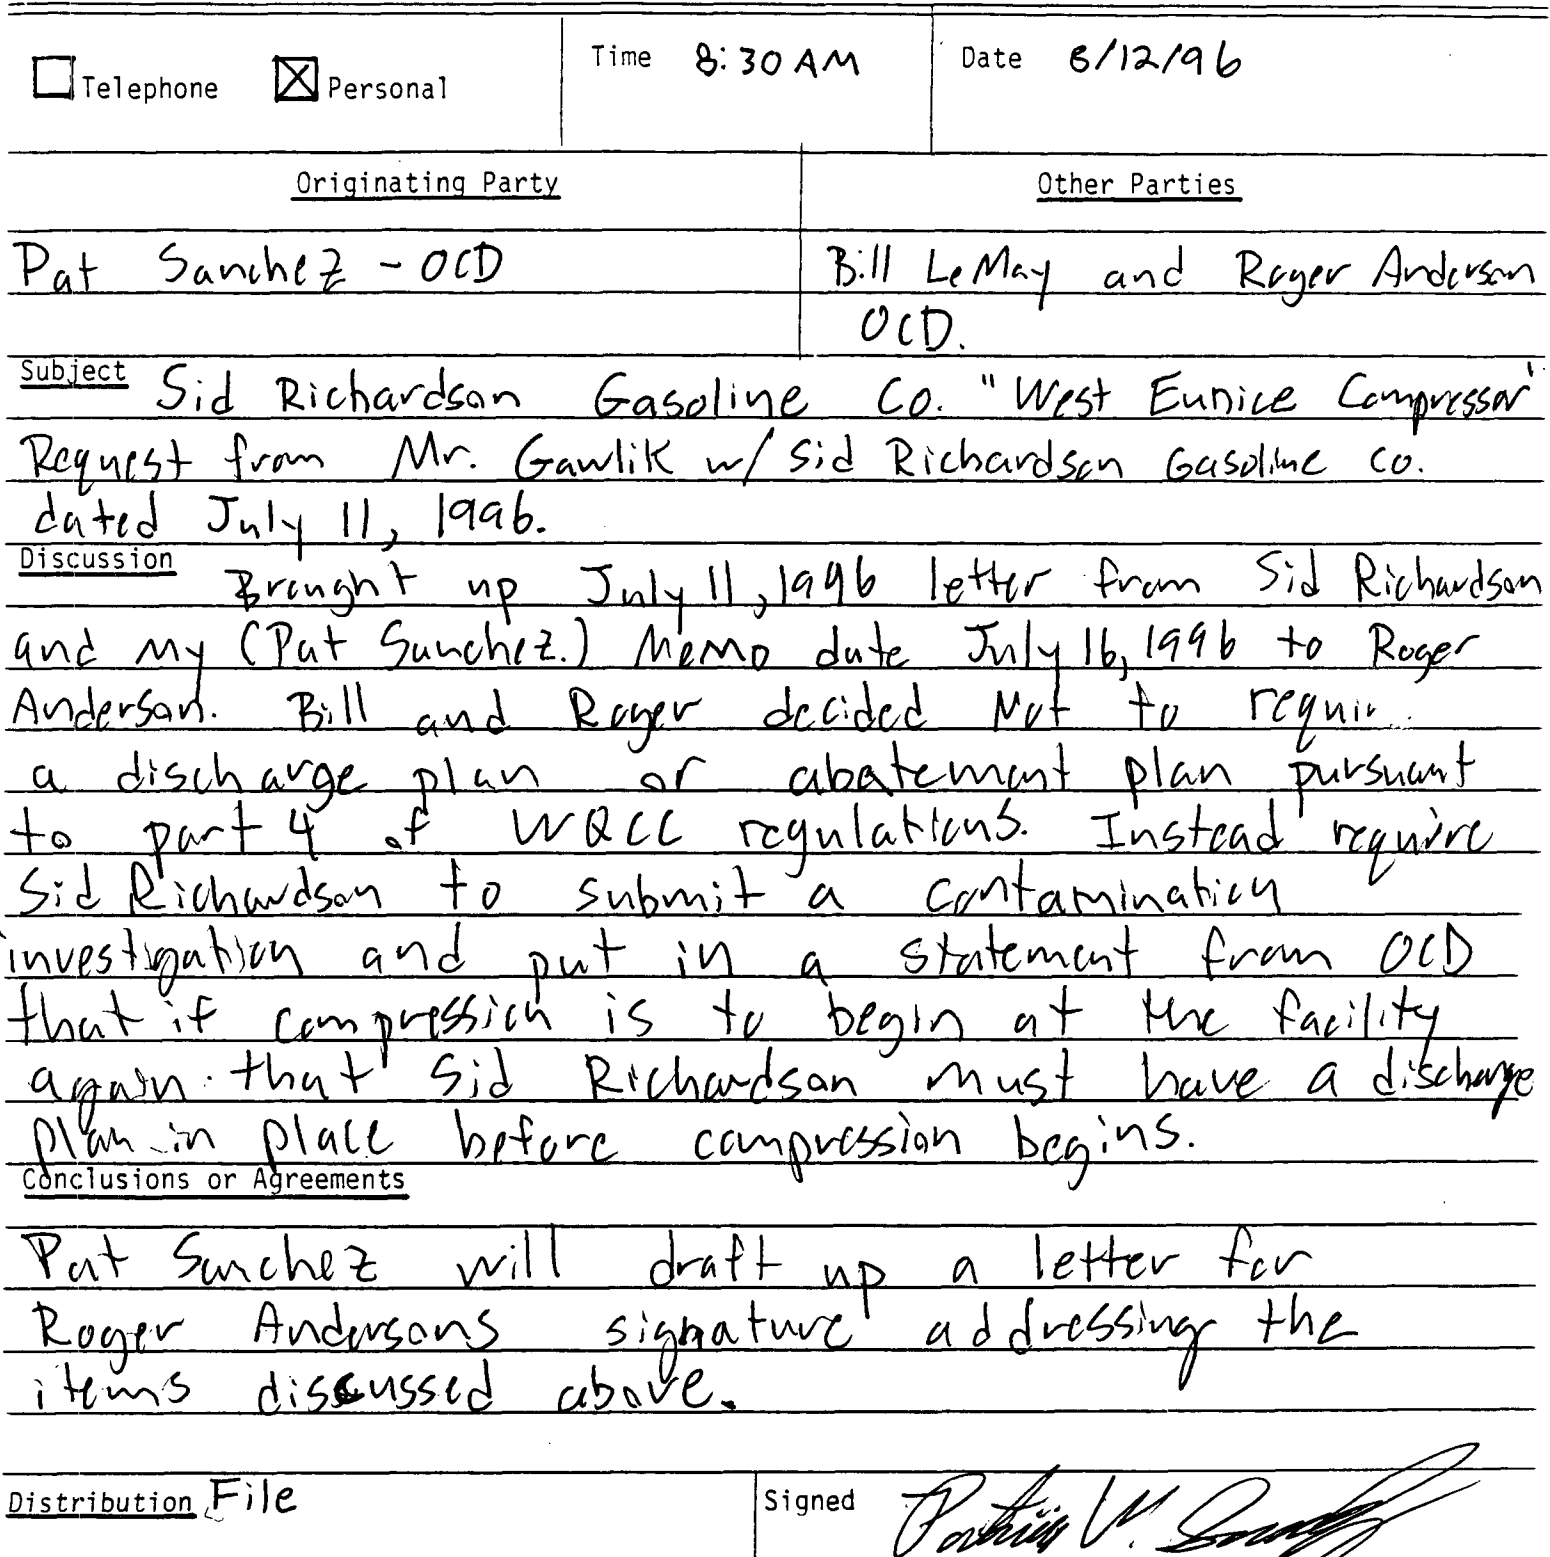 Telephone Personal Time 8:30 AM Date 8/12/96
Originating Party Other Parties
Pat Sanchez - OCD Bill LeMay and Roger Anderson
OCD.
Subject Sid Richardson Gasoline Co. "West Eunice Compressor"
Request from Mr. Gawlik w/ Sid Richardson Gasoline Co.
dated July 11, 1996.
Discussion Brought up July 11, 1996 letter from Sid Richardson
and my (Pat Sanchez.) Memo date July 16, 1996 to Roger
Anderson. Bill and Roger decided Not to requir
a discharge plan or abatement plan pursuant
to part 4 of WQCC regulations. Instead require
Sid Richardson to submit a contamination
investigation and put in a statement from OCD
that if compression is to begin at the facility
again that Sid Richardson must have a discharge
plan in place before compression begins.
Conclusions or Agreements
Pat Sanchez will draft up a letter for
Roger Andersons signature addressing the
items discussed above.
Distribution File Signed